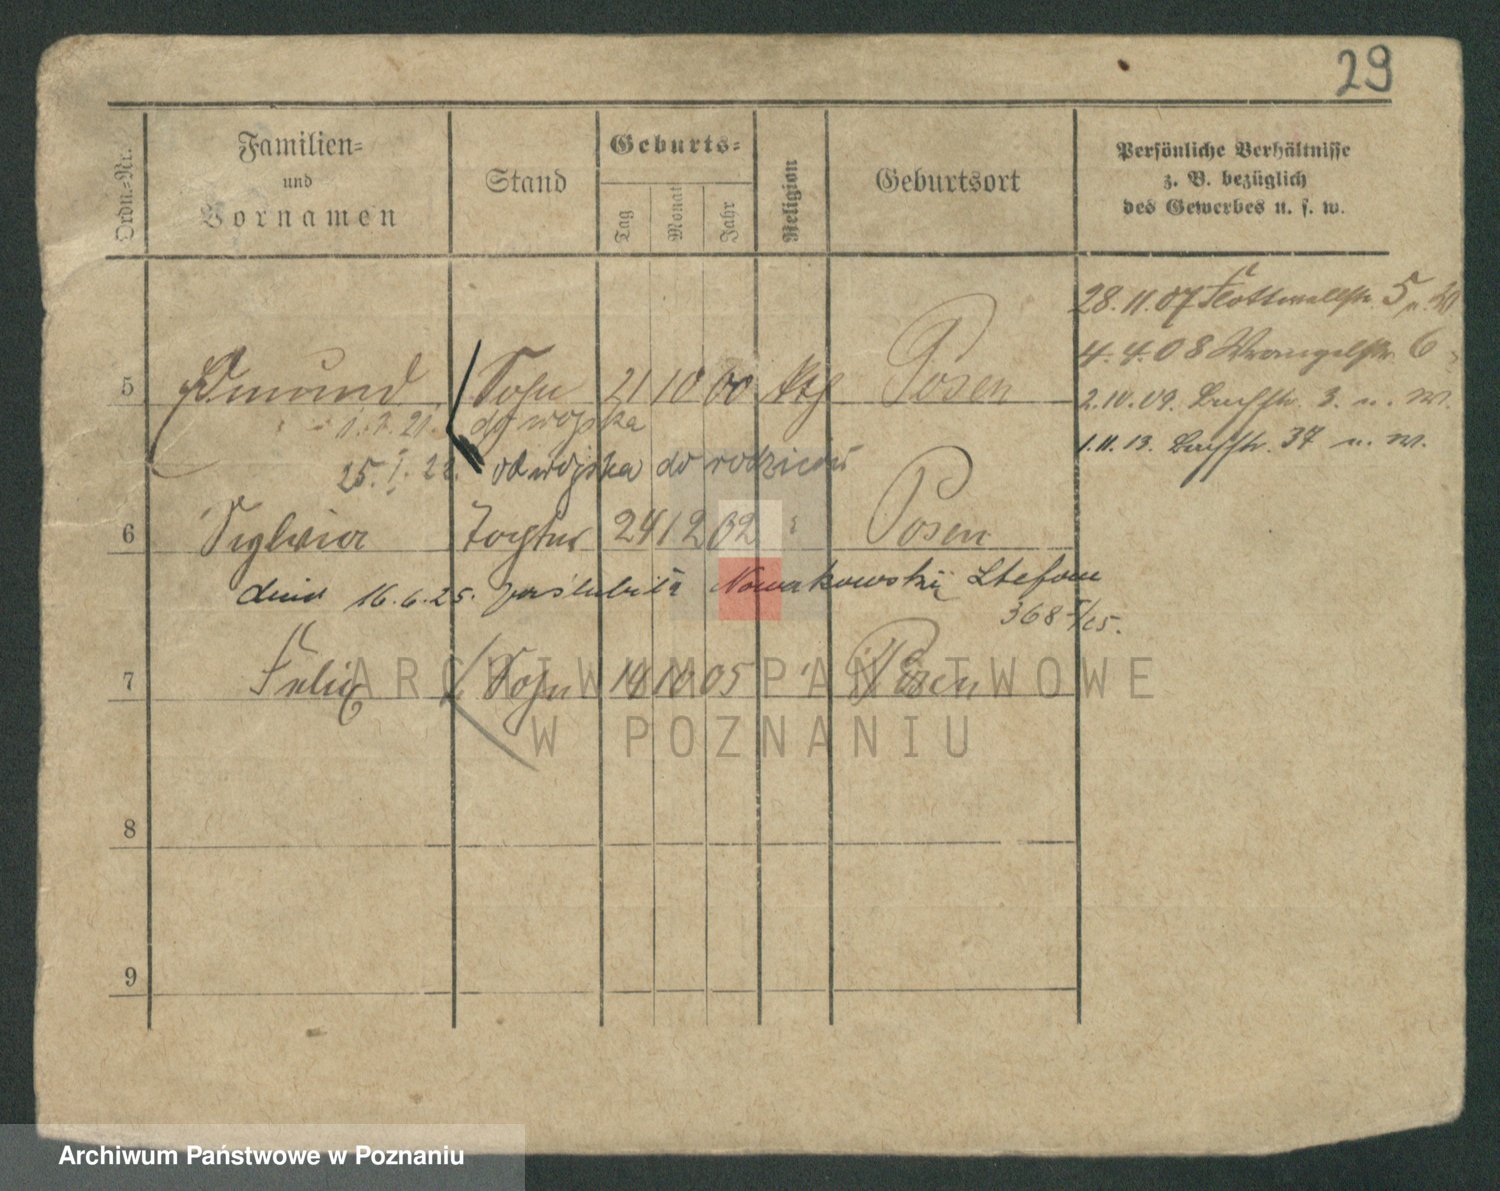 29
Ordn.-Nr.
Familien-
und
Vornamen
Stand
Geburts-
Tag
Monat
Jahr
Religion
Geburtsort
Persönliche Verhältnisse
z. B. bezüglich
des Gewerbes u. s. w.
28.11.07 5
4.4.08 Wrangelstr. 6
2.10.09. Bachstr. 3. u. W.
1.11.13. Bachstr. 37 u. W.
5 Edmund Sohn 21 10 00 kth Posen
do wojska
25.I.22. od wojska do rodziców
6 Sylvia Tochter 24 12 02 Posen
dnia 16.6.25. poślubiła Nowakowski Stefan
368
7 Felix Sohn 19 10 05 Posen
8
9
ARCHIWUM PAŃSTWOWE
W POZNANIU
Archiwum Państwowe w Poznaniu